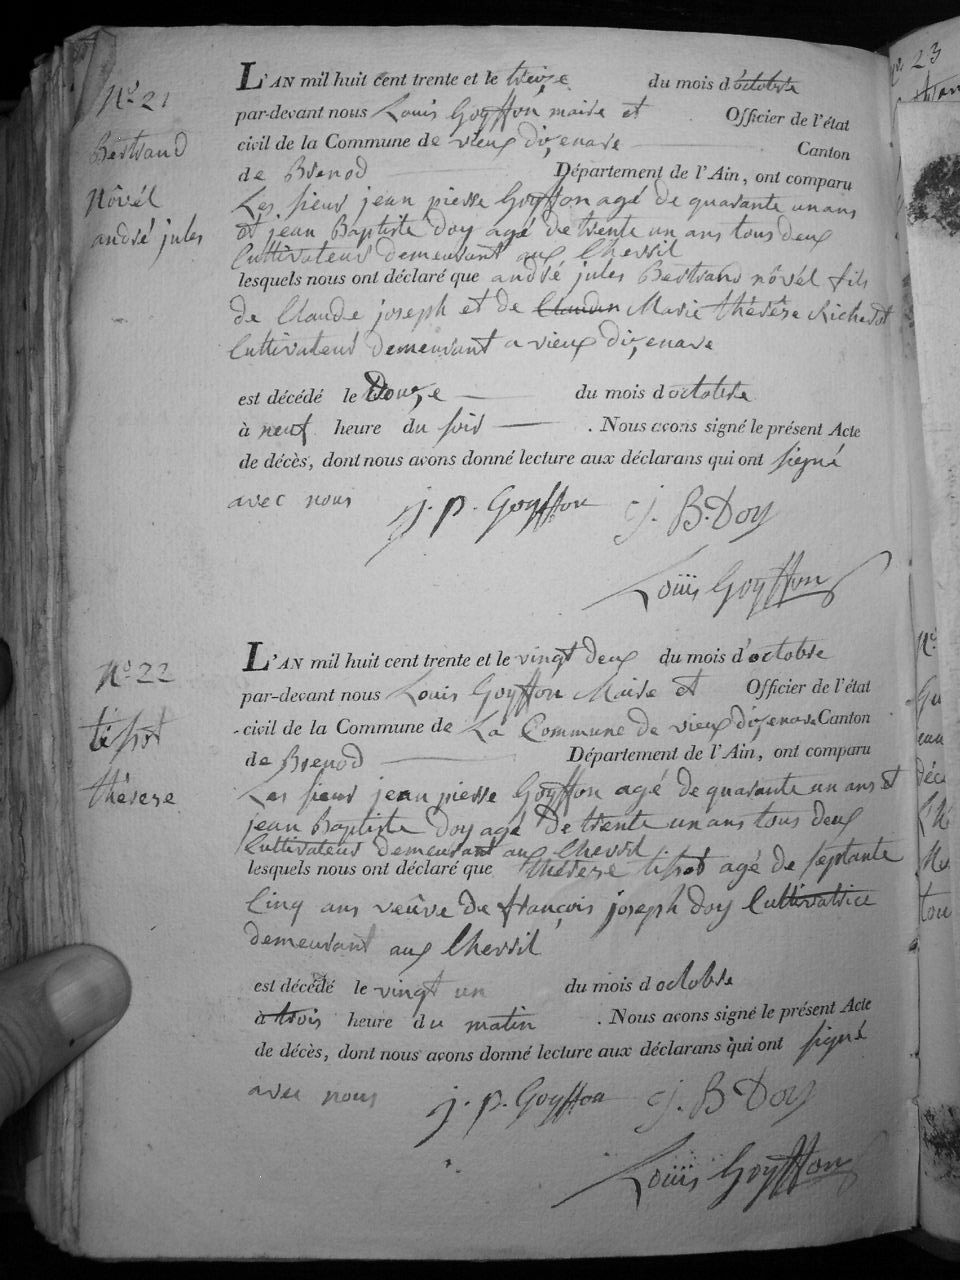 Nº 21
Bertrand
Nôvél
andré jules
L'AN mil huit cent trente et le treize du mois d'octobre
par-devant nous Louis Goyffon maire et Officier de l'état
civil de la Commune de vieux dizenave Canton
de Brenod Département de l'Ain, ont comparu
Les sieur jean pierre Goyffon agé de quarante un ans
et jean Baptiste Doy agé de trente un ans tous deux
Cultivateur demeurant aux Cherril
lesquels nous ont déclaré que andré jules Bertrand nôvél fils
de Claude joseph et de Claudin Marie thérèse Richerot
Cultivateur demeurant a vieux dizenave
est décédé le Douze du mois d octobre
à neuf heure du soir . Nous avons signé le présent Acte
de décès, dont nous avons donné lecture aux déclarans qui ont signé
avec nous j. p. Goyffon j. B. Doy
Louis Goyffon
Nº 22
tissot
thérèse
L'AN mil huit cent trente et le vingt deux du mois d'octobre
par-devant nous Louis Goyffon Maire et Officier de l'état
civil de la Commune de La Commune de vieux dizenave Canton
de Brenod Département de l'Ain, ont comparu
Les sieur jean pierre Goyffon agé de quarante un ans et
jean Baptiste Doy agé de trente un ans tous deux
Cultivateur demeurant aux Cherril
lesquels nous ont déclaré que thérèse tissot agé de septante
Cinq ans veûve de françois joseph doy Cultivatrice
demeurant aux Cherril
est décédé le vingt un du mois d octobre
à trois heure du matin . Nous avons signé le présent Acte
de décès, dont nous avons donné lecture aux déclarans qui ont signé
avec nous j. p. Goyffon j. B Doy
Louis Goyffon
23